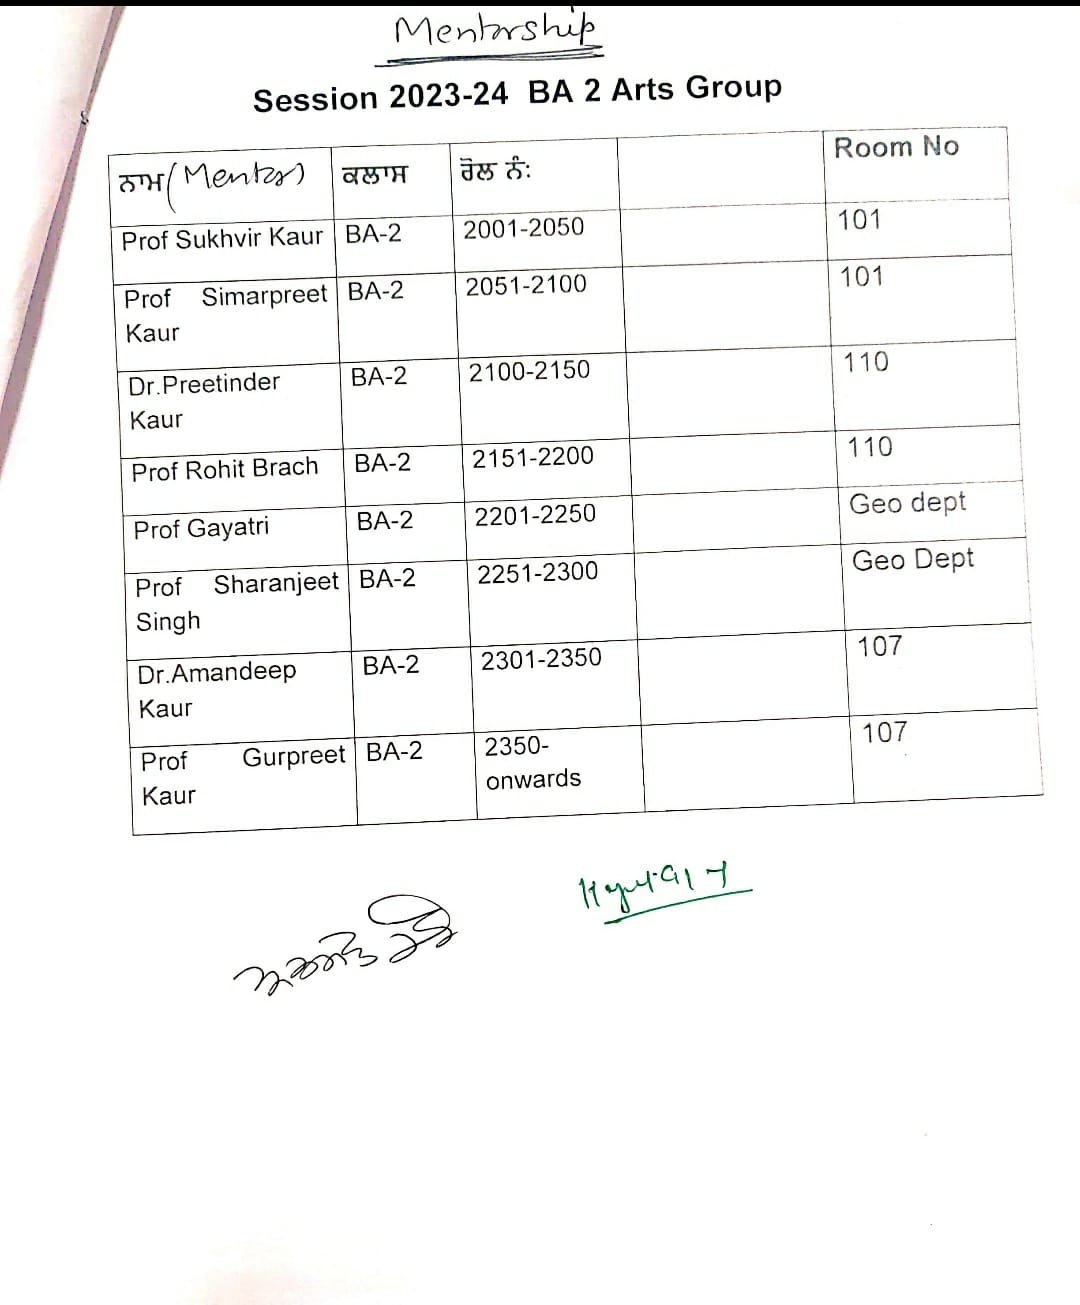 Mentorship
Session 2023-24 BA 2 Arts Group
ਨਾਮ (Mentor) ਕਲਾਸ ਰੋਲ ਨੰ: Room No
Prof Sukhvir Kaur BA-2 2001-2050 101
Prof Simarpreet BA-2 2051-2100 101
Kaur
Dr.Preetinder BA-2 2100-2150 110
Kaur
Prof Rohit Brach BA-2 2151-2200 110
Prof Gayatri BA-2 2201-2250 Geo dept
Prof Sharanjeet BA-2 2251-2300 Geo Dept
Singh
Dr.Amandeep BA-2 2301-2350 107
Kaur
Prof Gurpreet BA-2 2350- 107
Kaur onwards